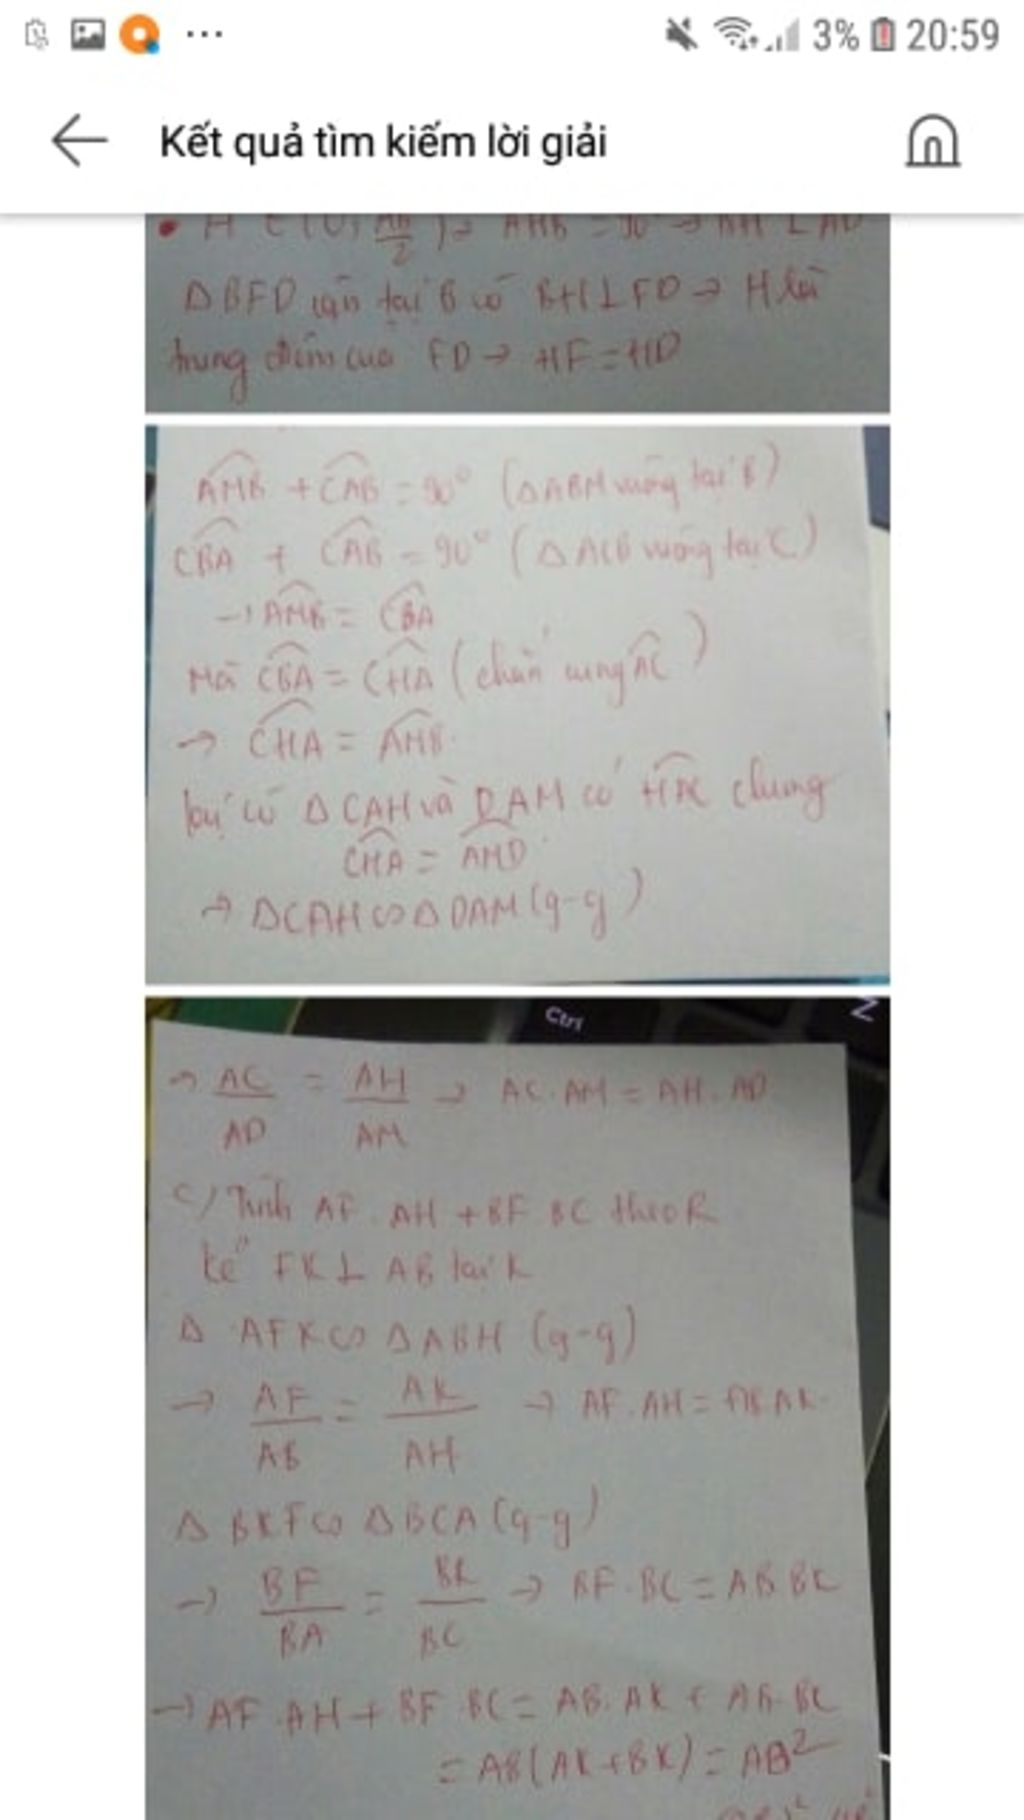 3% 20:59
Kết quả tìm kiếm lời giải
ΔBFD cân tại B có BH⊥FD → H là
trung điểm của FD → HF = HD
AMB + CAB = 90° (ΔABM vuông tại B)
CBA + CAB = 90° (ΔACB vuông tại C)
→ AMB = CBA
Mà CBA = CHA (chắn cung AC)
→ CHA = AMB
lại có ΔCAH và DAM có HAC chung
CHA = AMD
→ ΔCAH ∽ ΔDAM (g-g)
Ctrl
Z
→ AC/AD = AH/AM → AC.AM = AH.AD
c) Tính AF.AH + BF.BC theo R
kẻ FK⊥AB tại K
Δ AFK ∽ ΔABH (g-g)
→ AF/AB = AK/AH → AF.AH = AB.AK
Δ BKF ∽ ΔBCA (g-g)
→ BF/BA = BK/BC → BF.BC = AB.BK
→ AF.AH + BF.BC = AB.AK + AB.BK
= AB(AK+BK) = AB²